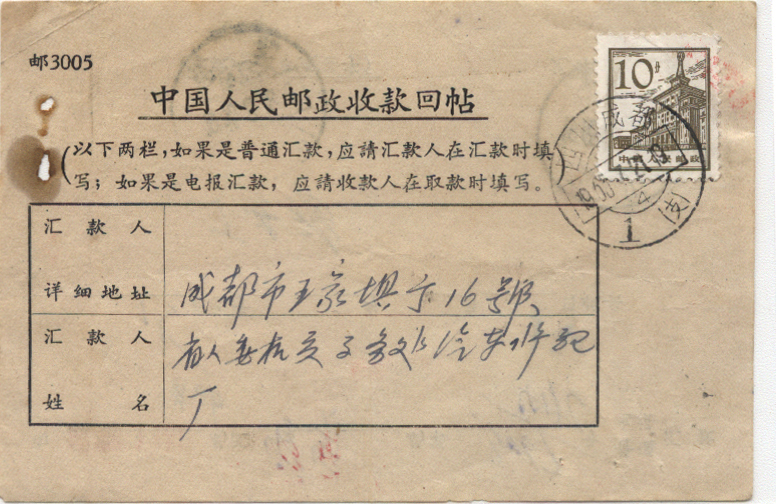 邮3005
中国人民邮政收款回帖
(以下两栏,如果是普通汇款,应請汇款人在汇款时填
写;如果是电报汇款,应請收款人在取款时填写。)
10分
中国人民邮政
成都
1
(支)
汇款人
详细地址
成都市王家埧 16號
汇款人
姓名
省人委机关 汽车修配
厂